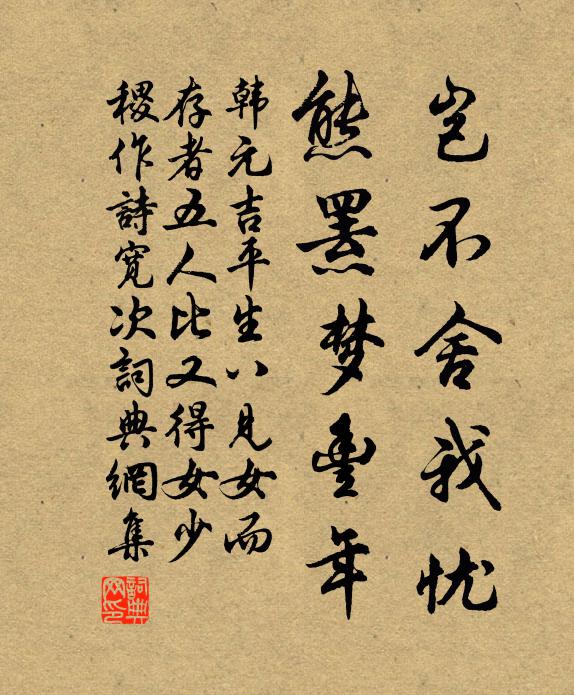 岂不舍我忧
熊罴梦丰年
韩元吉平生八见女而
存者五人比又得女少
稷作詩寬次詞典網集
詞典网印